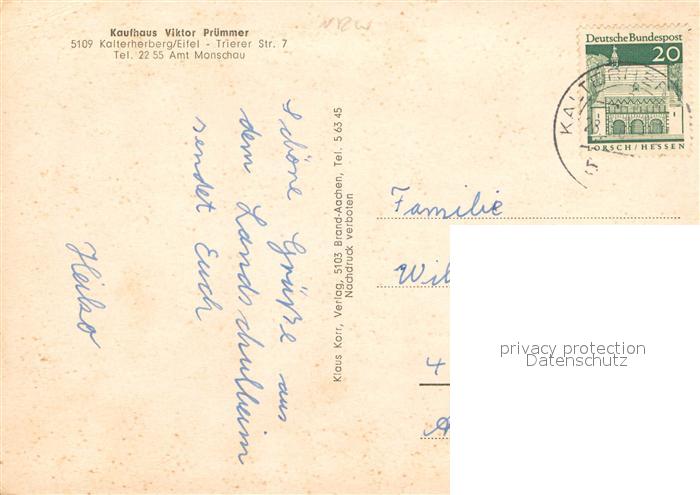 NRW
Kaufhaus Viktor Prümmer
5109 Kalterherberg/Eifel - Trierer Str. 7
Tel. 22 55 Amt Monschau
Deutsche Bundespost
20
LORSCH/HESSEN
KALTERHER
28
Schöne Grüße aus
dem Landschulheim
sendet Euch
Heiko
Klaus Korr, Verlag, 5103 Brand-Aachen, Tel. 5 63 45
Nachdruck verboten
Familie
Wil
4
A
privacy protection
Datenschutz